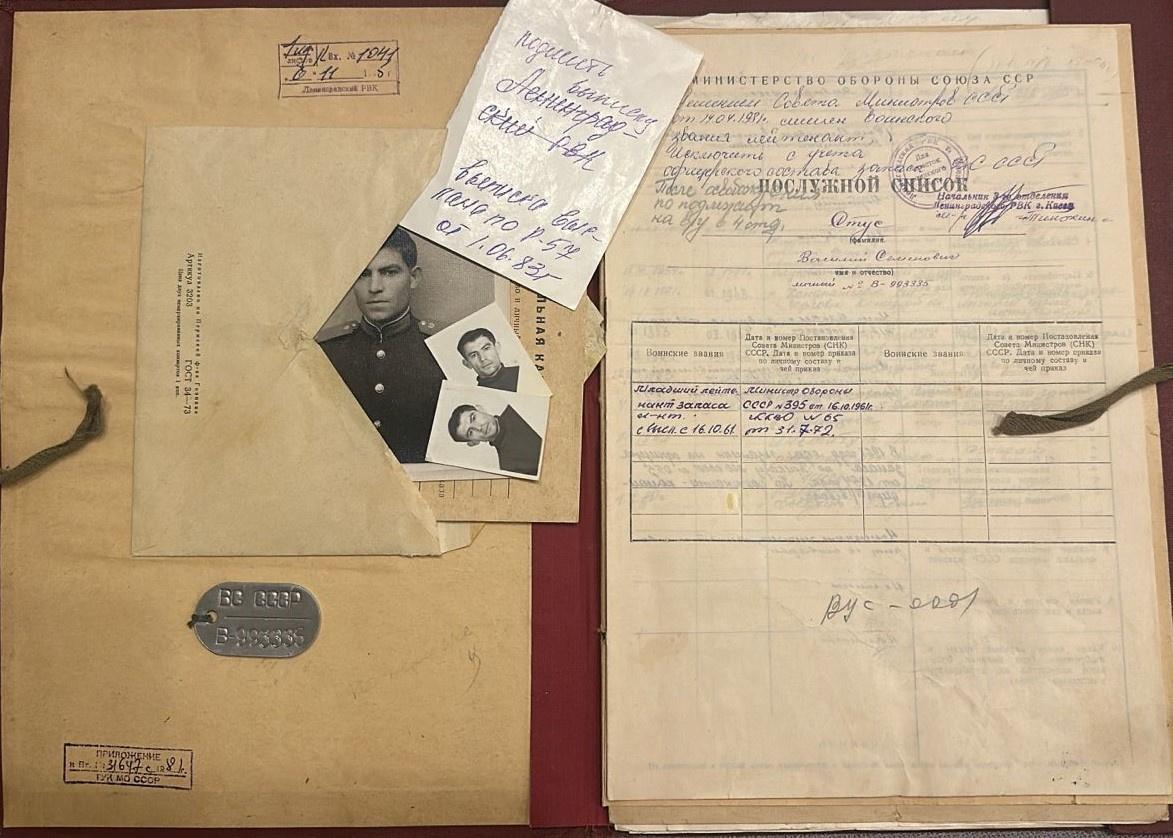 Вх. № 1041
11
Ленинградский РВК
подшить
выписку
Ленинград-
ский РВК
выписка выс-
лана по р-577
от 1.06.83г
Изготовлено на Пермской ф-ке Гознака
Артикул 3203 ГОСТ 34—73
ЬНАЯ КА
ВС СССР
В-993335
ПРИЛОЖЕНИЕ
к Вх. 31647с 1981.
ГУК МО СССР
МИНИСТЕРСТВО ОБОРОНЫ СОЮЗА ССР
Решением Совета Министров СССР
от 14.04.1981г. лишен воинского
звания лейтенант.
Исключить с учета
офицерского состава запаса ВС СССР
ПОСЛУЖНОЙ СПИСОК
После
по
на в/у в 4 отд.
Для
Начальник 3-го отделения
Ленинградского РВК г. Киева
Стус
(фамилия,
Василий Семенович
имя и отчество)
личный № В-993335
Воинские звания
Дата и номер Постановления
Совета Министров (СНК)
СССР. Дата и номер приказа
по личному составу и
чей приказ
Воинские звания
Дата и номер Постановления
Совета Министров (СНК)
СССР. Дата и номер приказа
по личному составу и
чей приказ
Младший лейте-
нант запаса
л-нт.
с высл. с 16.10.61
Министр Обороны
СССР №395 от 16.10.1961г.
ККВО №65
от 31.7.72.
ВУС-0001